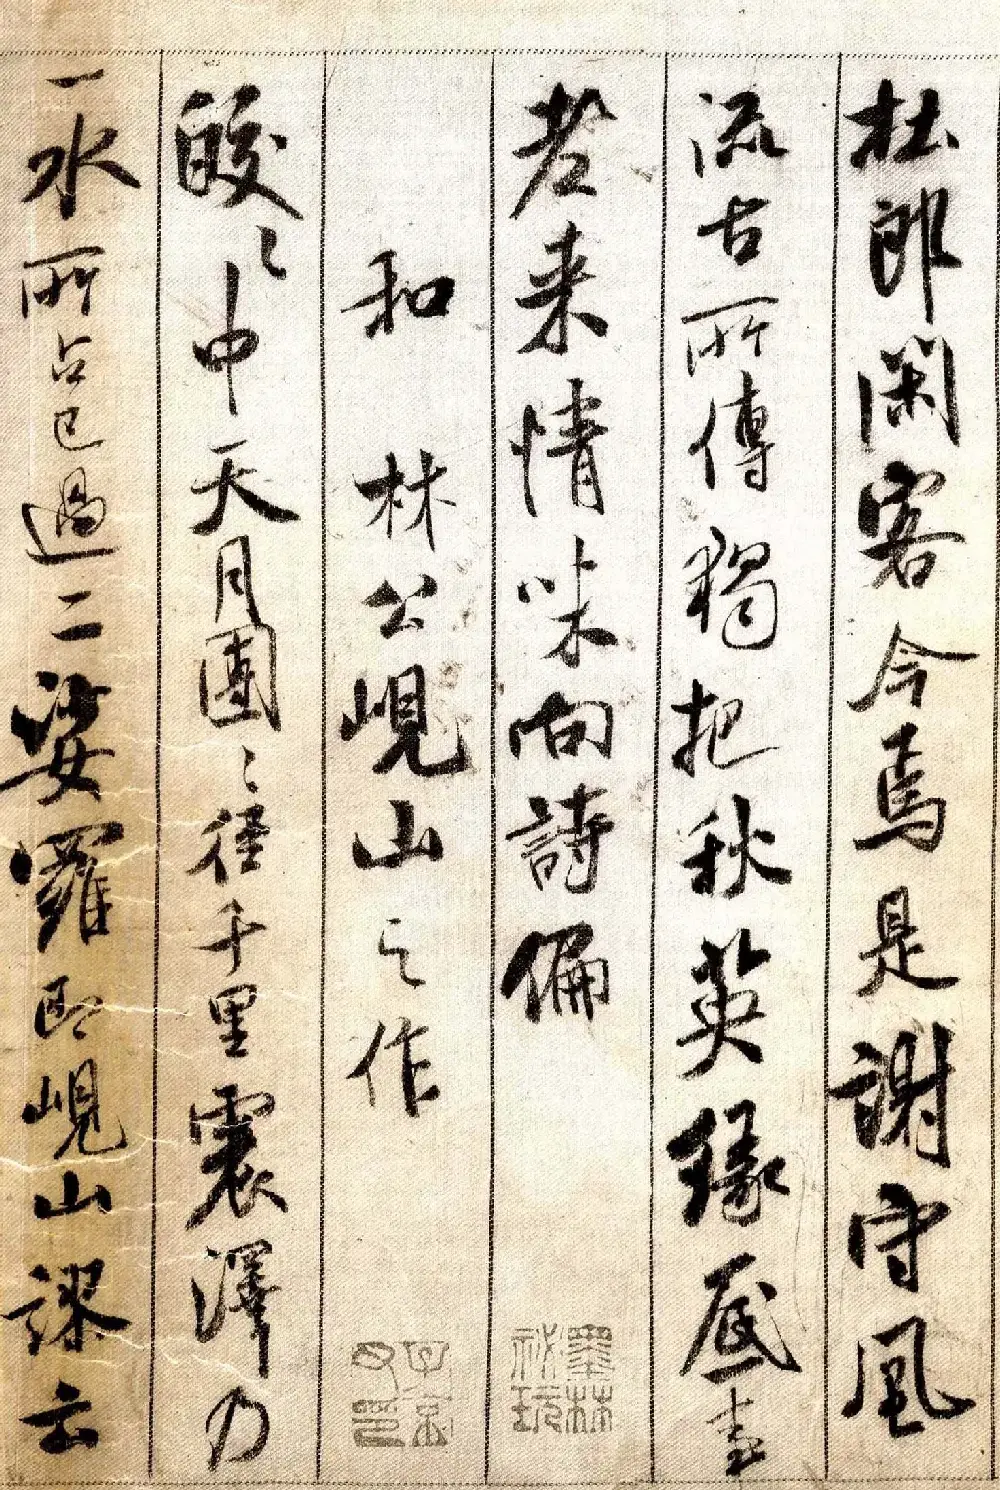 杜郎閑客今焉是謝守風
流古所傳獨把秋英緣底事
老来情味向詩偏
和林公峴山之作
皎〻中天月團〻徑千里震澤乃
一水所占已過二娑羅即峴山謬云
墨林
祕玩